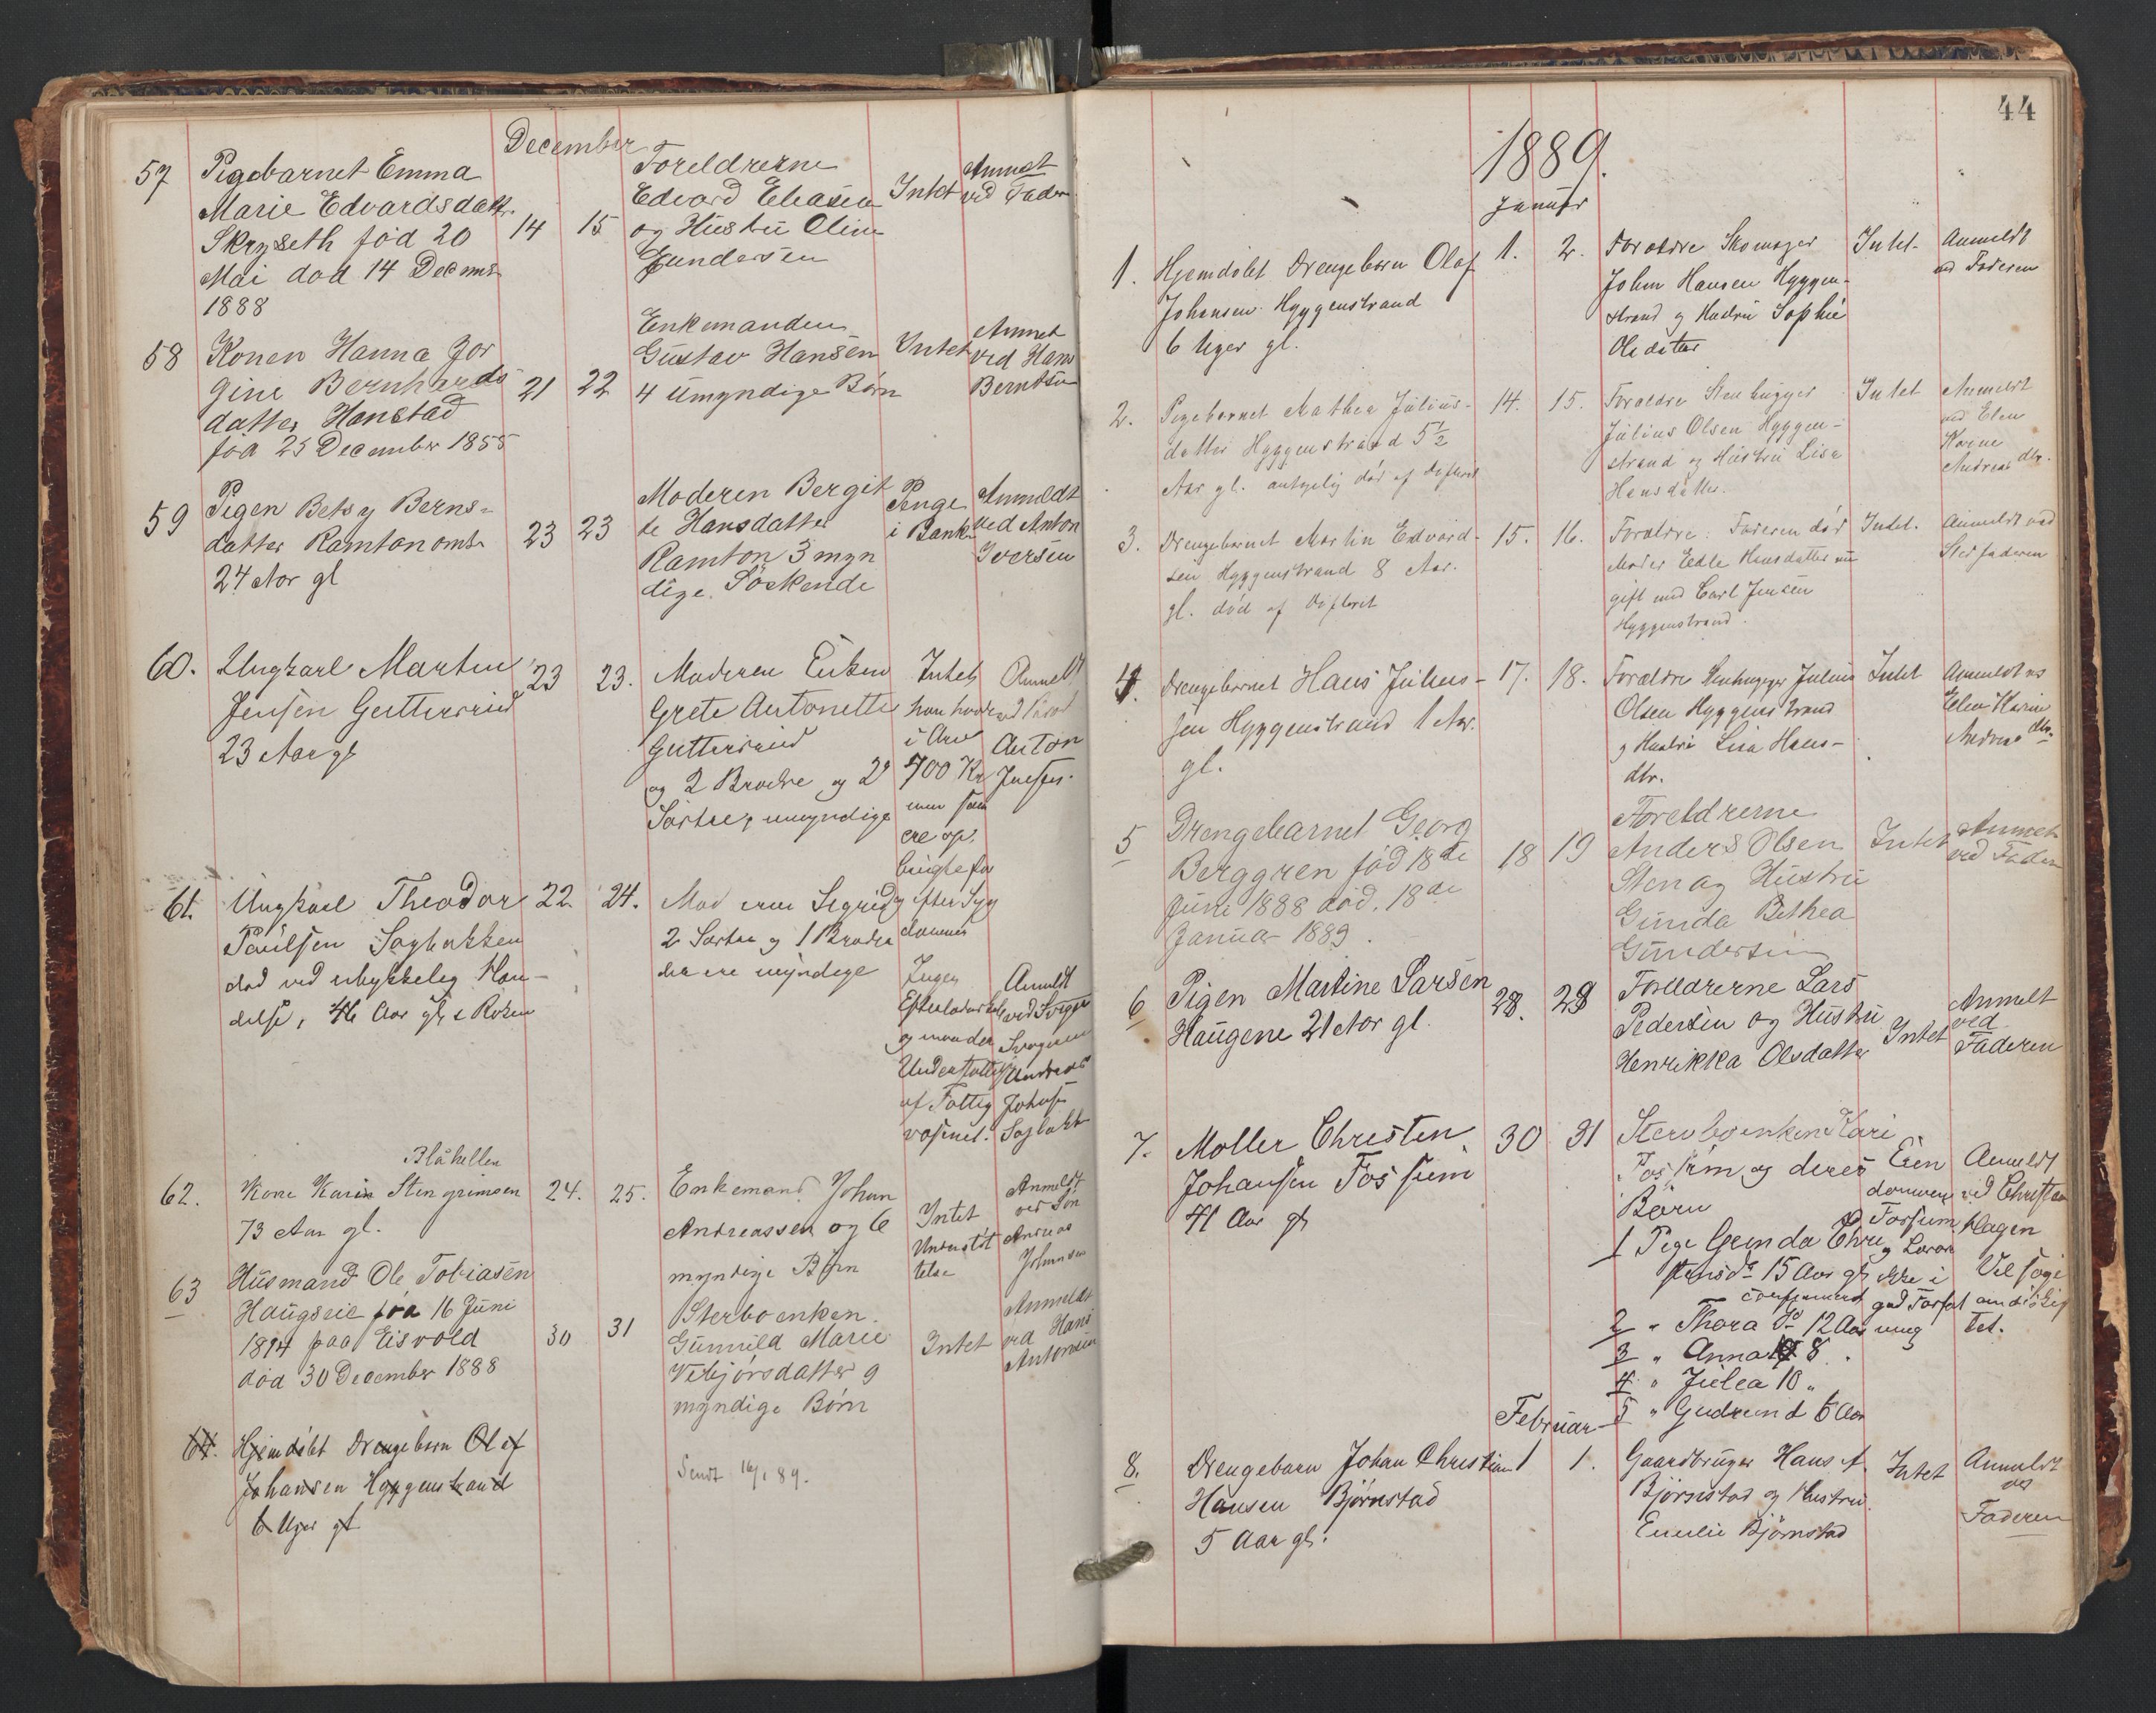 December
57 Pigebarnet Emma
Marie Edvardsdatt.
Skryseth föd 20
Mai död 14 Decemb
1888
14 15
Foreldrerne
Edvard Eliasen
og Hustru Oline
Gundersen
Intet
Anmet
ved Fader
58 Konen Hanna Jor
gine Bernhards
datter Hanstad
föd 25 December 1855
21 22
Enkemanden
Gustav Hansen
4 umyndige Börn
Intet
Anmet
ved Hans
Berntsen
59 Pigen Betsy Berns-
datter Ramton omtr
24 Aar gl
23 23
Moderen Bergit
te Hansdatter
Ramton 3 myn
dige Söskende
Penge
i Bank
Anmeldt
ved Anton
Iversen
60. Ungkarl Martin
Jensen Gutterud
23 Aar gl
23 23.
Moderen Enken
Grete Antonette
Gutterud
og 2 Brødre og 2
Søstre, umyndige
Intet
han havde
i Arv
700 Kr
men som
ere op
brugte for
efter Syg
dommen
Anmeldt
ved
Anton
Jensen
61. Ungkarl Theodor
Paulsen Sagbakken
død ved ulykkelig Hæn-
delse, 46 Aar gl
22 24.
Moderen Sigrid
2 Søstre og 1 Broder
der ere myndige
Ingen
Efterladenskab
Understøttelse
af Fattig
væsenet.
Anmeldt
ved Svoger
Svogeren
Andreas
Johans
Sagbakk
Blåhellen
62. Kone Karin Stengrimsen
73 Aar gl.
24. 25.
Enkemand Johan
Andreassen og 6
myndige Börn
Intet
Understöt
telse
Anmeldt
ved Sön
Andreas
Johansen
63 Husmand Ole Tobiasen
Haugseie föd 16 Juni
1814 paa Eisvold
död 30 December 1888
30 31
Sterboenken
Gunnild Marie
Vebjörsdatter 9
myndige Börn
Intet
Anmeldt
ved Hans
Antonsen
64. Hjemdöbt Drengebarn Olaf
Johansen Hyggenstrand
6 Uger gl
Sendt 16/1 89.
44
1889.
Januar
1. Hjemdöbt Drengebarn Olaf
Johansen Hyggenstrand
6 Uger gl.
1. 2.
Forældre Skomager
Johan Hansen Hyggen-
strand og Hustru Sophie
Olsdatter
Intet
Anmeldt
ved Faderen
2. Pigebarnet Mathea Julius-
datter Hyggenstrand 5½
Aar gl. antagelig död af Difterit
14. 15.
Forældre Stenhugger
Julius Olsen Hyggen-
strand og Hustru Lisa
Hansdatter.
Intet
Anmeldt
ved Elen
Karine
Andreasdtr.
3. Drengebarnet Martin Edvard-
sen Hyggenstrand 8 Aar.
gl. död af Difterit
15. 16.
Forældre: Faderen död
Moder Edle Hansdatter nu
gift med Carl Jensen
Hyggenstrand.
Intet.
Anmeldt ved
Stedfaderen
4. Drengebarnet Hans Julius-
sen Hyggenstrand 1 Aar.
gl.
17. 18.
Forældre Stenhugger Julius
Olsen Hyggenstrand
og Hustru Lisa Hans-
dtr.
Intet
Anmeldt ved
Elen Karine
Andreasdtr.
5 Drengebarnet Georg
Berggren föd 18de
Juni 1888 död. 18de
Januar 1889.
18 19
Foreldrerne
Anders Olsen
Sten og Hustru
Gunda Bethea
Gundersen
Intet
Anmet
ved Fader
6 Pigen Martine Larsen
Haugene 21 Aar gl.
28. 29
Foreldrerne Lars
Pedersen og Hustru
Henrikka Olsdatter
Intet
Anmelt
ved
Faderen
7. Møller Christen
Johansen Fossum
41 Aar gl
30 31
Stervboenken Kari
Fossum og deres
Børn
1 Pige Gunda Chri
stensdr 15 Aar gl ikke
confirmeret
2 " Thora Do 12 Aar
3 " Anna 8 "
4 " Julea 10 "
5 " Gudrund 6 Aar
Eien
dommen
Fossum
og Løsøre
i
god Forfat
ning
Anmeldt
ved Christian
Hagen
Vil søge
om
tet.
Februar
8. Drengebarn Johan Christian
Hansen Björnstad
5 Aar gl.
1 1.
Gaardbruger Hans A.
Björnstad og Hustru
Emilie Björnstad
Intet
Anmeldt
ved
Faderen